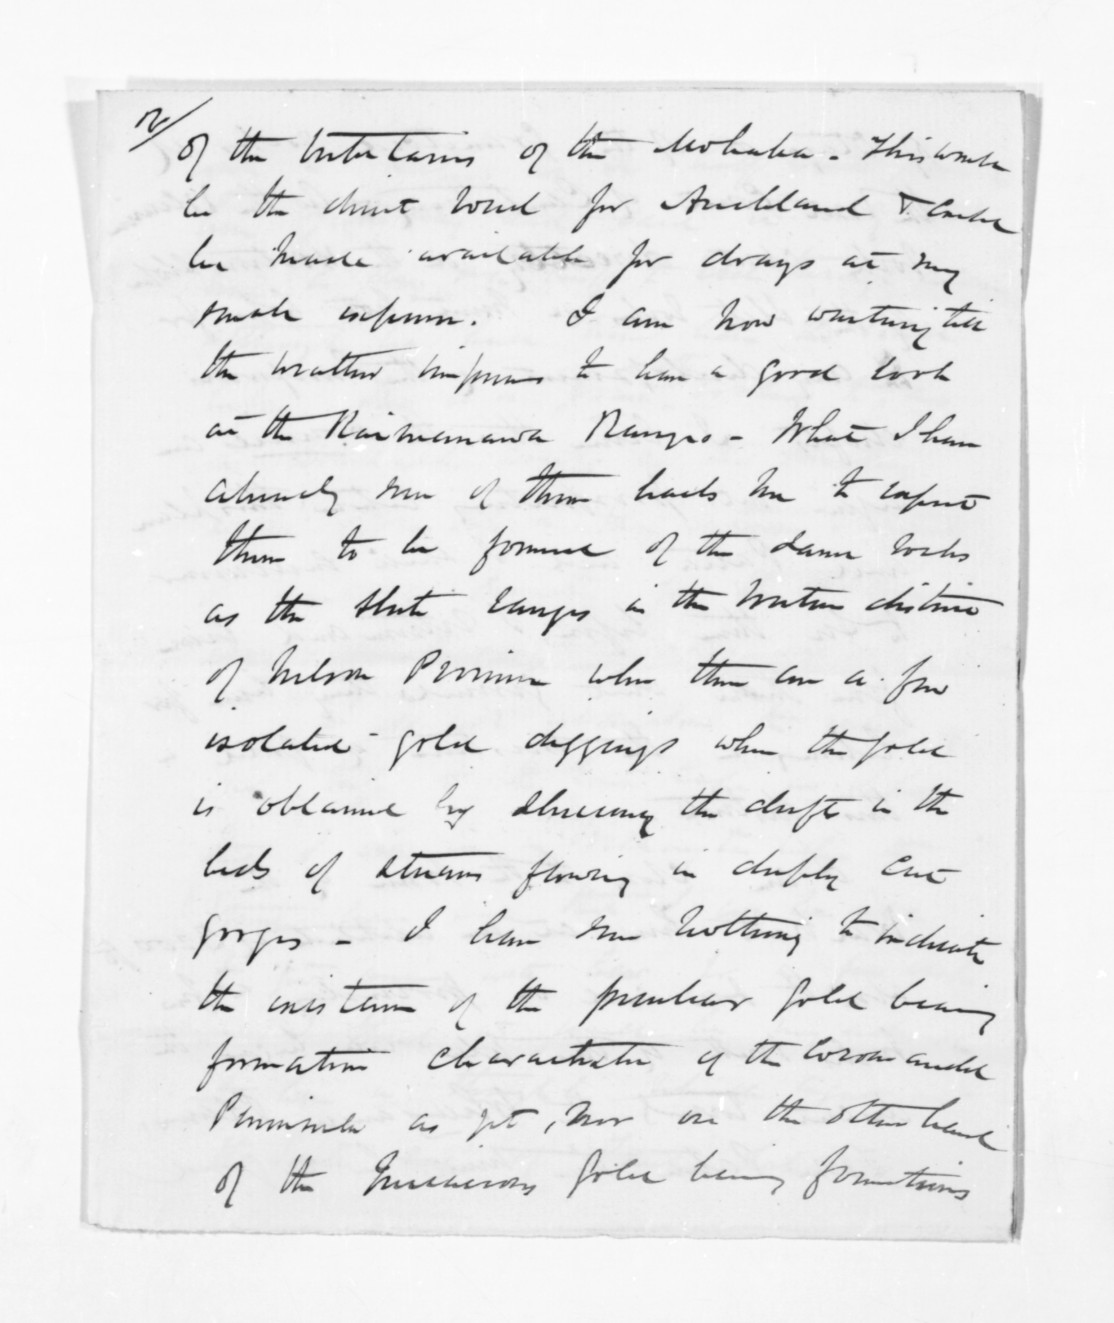 2/
of the tributaries of the Mohaka - This would
be the direct road for Auckland & could
be made available for drays at very
small expense. I am now waiting till
the weather improves to have a good look
at the Kaimanawa Ranges - What I have
already seen of them leads me to expect
them to be formed of the same rocks
as the slate ranges in the Western district
of Nelson Province where there are a few
isolated gold diggings where the gold
is obtained by sluicing the drifts in the
beds of streams flowing in deeply cut
gorges - I have seen nothing to indicate
the existence of the peculiar gold bearing
formation characteristic of the Coromandel
Peninsula as yet, nor on the other hand
of the gold bearing formations